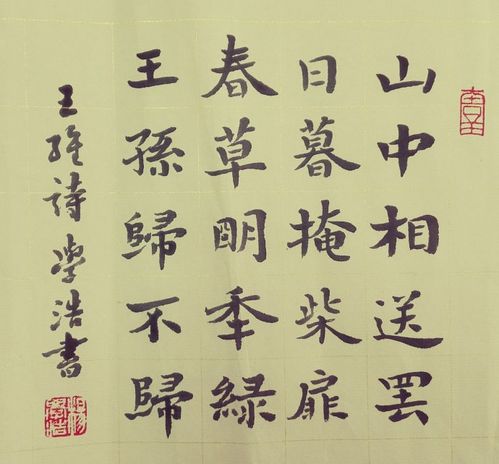 山中相送罢
日暮掩柴扉
春草明秊緑
王孫歸不歸
王維詩學浩書